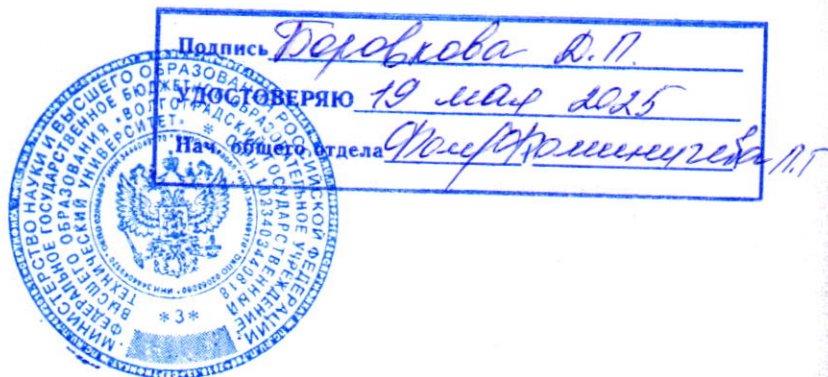 Подпись Боровкова Д.П.
УДОСТОВЕРЯЮ 19 мая 2025
Нач. общего отдела
МИНИСТЕРСТВО НАУКИ И ВЫСШЕГО ОБРАЗОВАНИЯ РОССИЙСКОЙ ФЕДЕРАЦИИ
ФЕДЕРАЛЬНОЕ ГОСУДАРСТВЕННОЕ БЮДЖЕТНОЕ ОБРАЗОВАТЕЛЬНОЕ УЧРЕЖДЕНИЕ
ВЫСШЕГО ОБРАЗОВАНИЯ "ВОЛГОГРАДСКИЙ ГОСУДАРСТВЕННЫЙ
ТЕХНИЧЕСКИЙ УНИВЕРСИТЕТ" * ОГРН 1023403440818
*3*